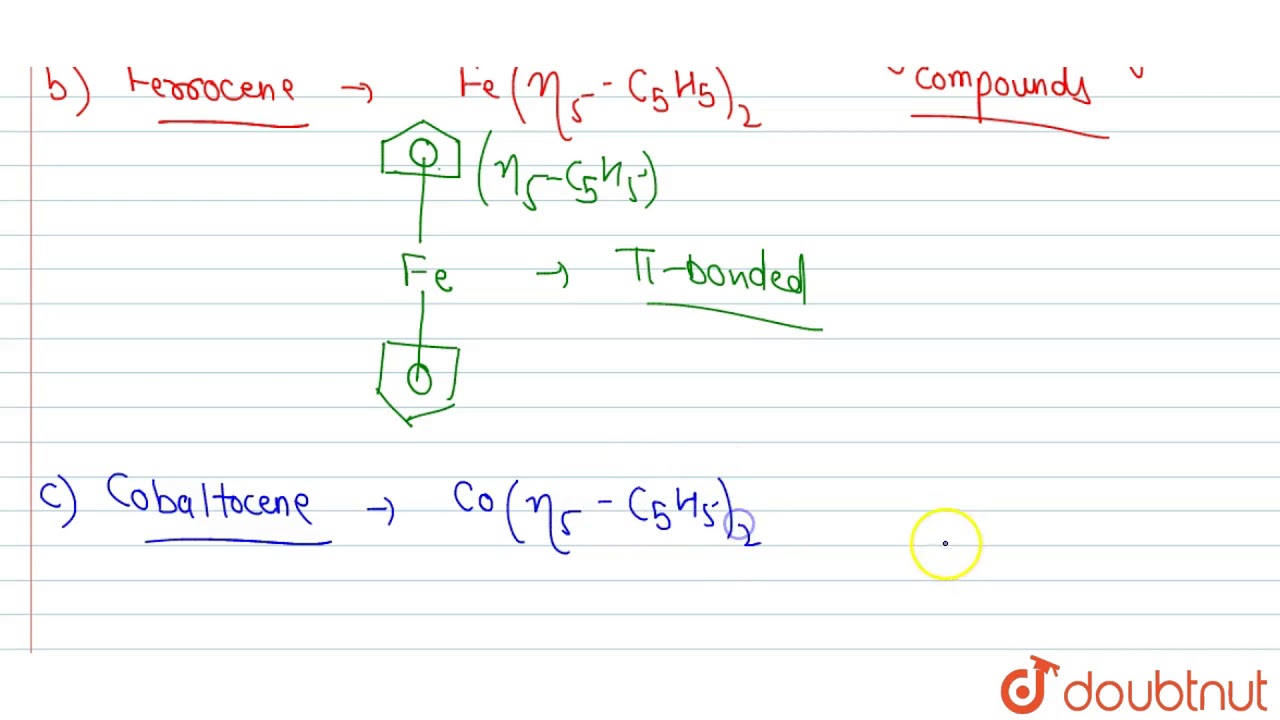 b) Ferrocene → Fe(η5-C5H5)2 compounds
(η5-C5H5)
Fe → π-bonded
c) Cobaltocene → Co(η5-C5H5)2
doubtnut